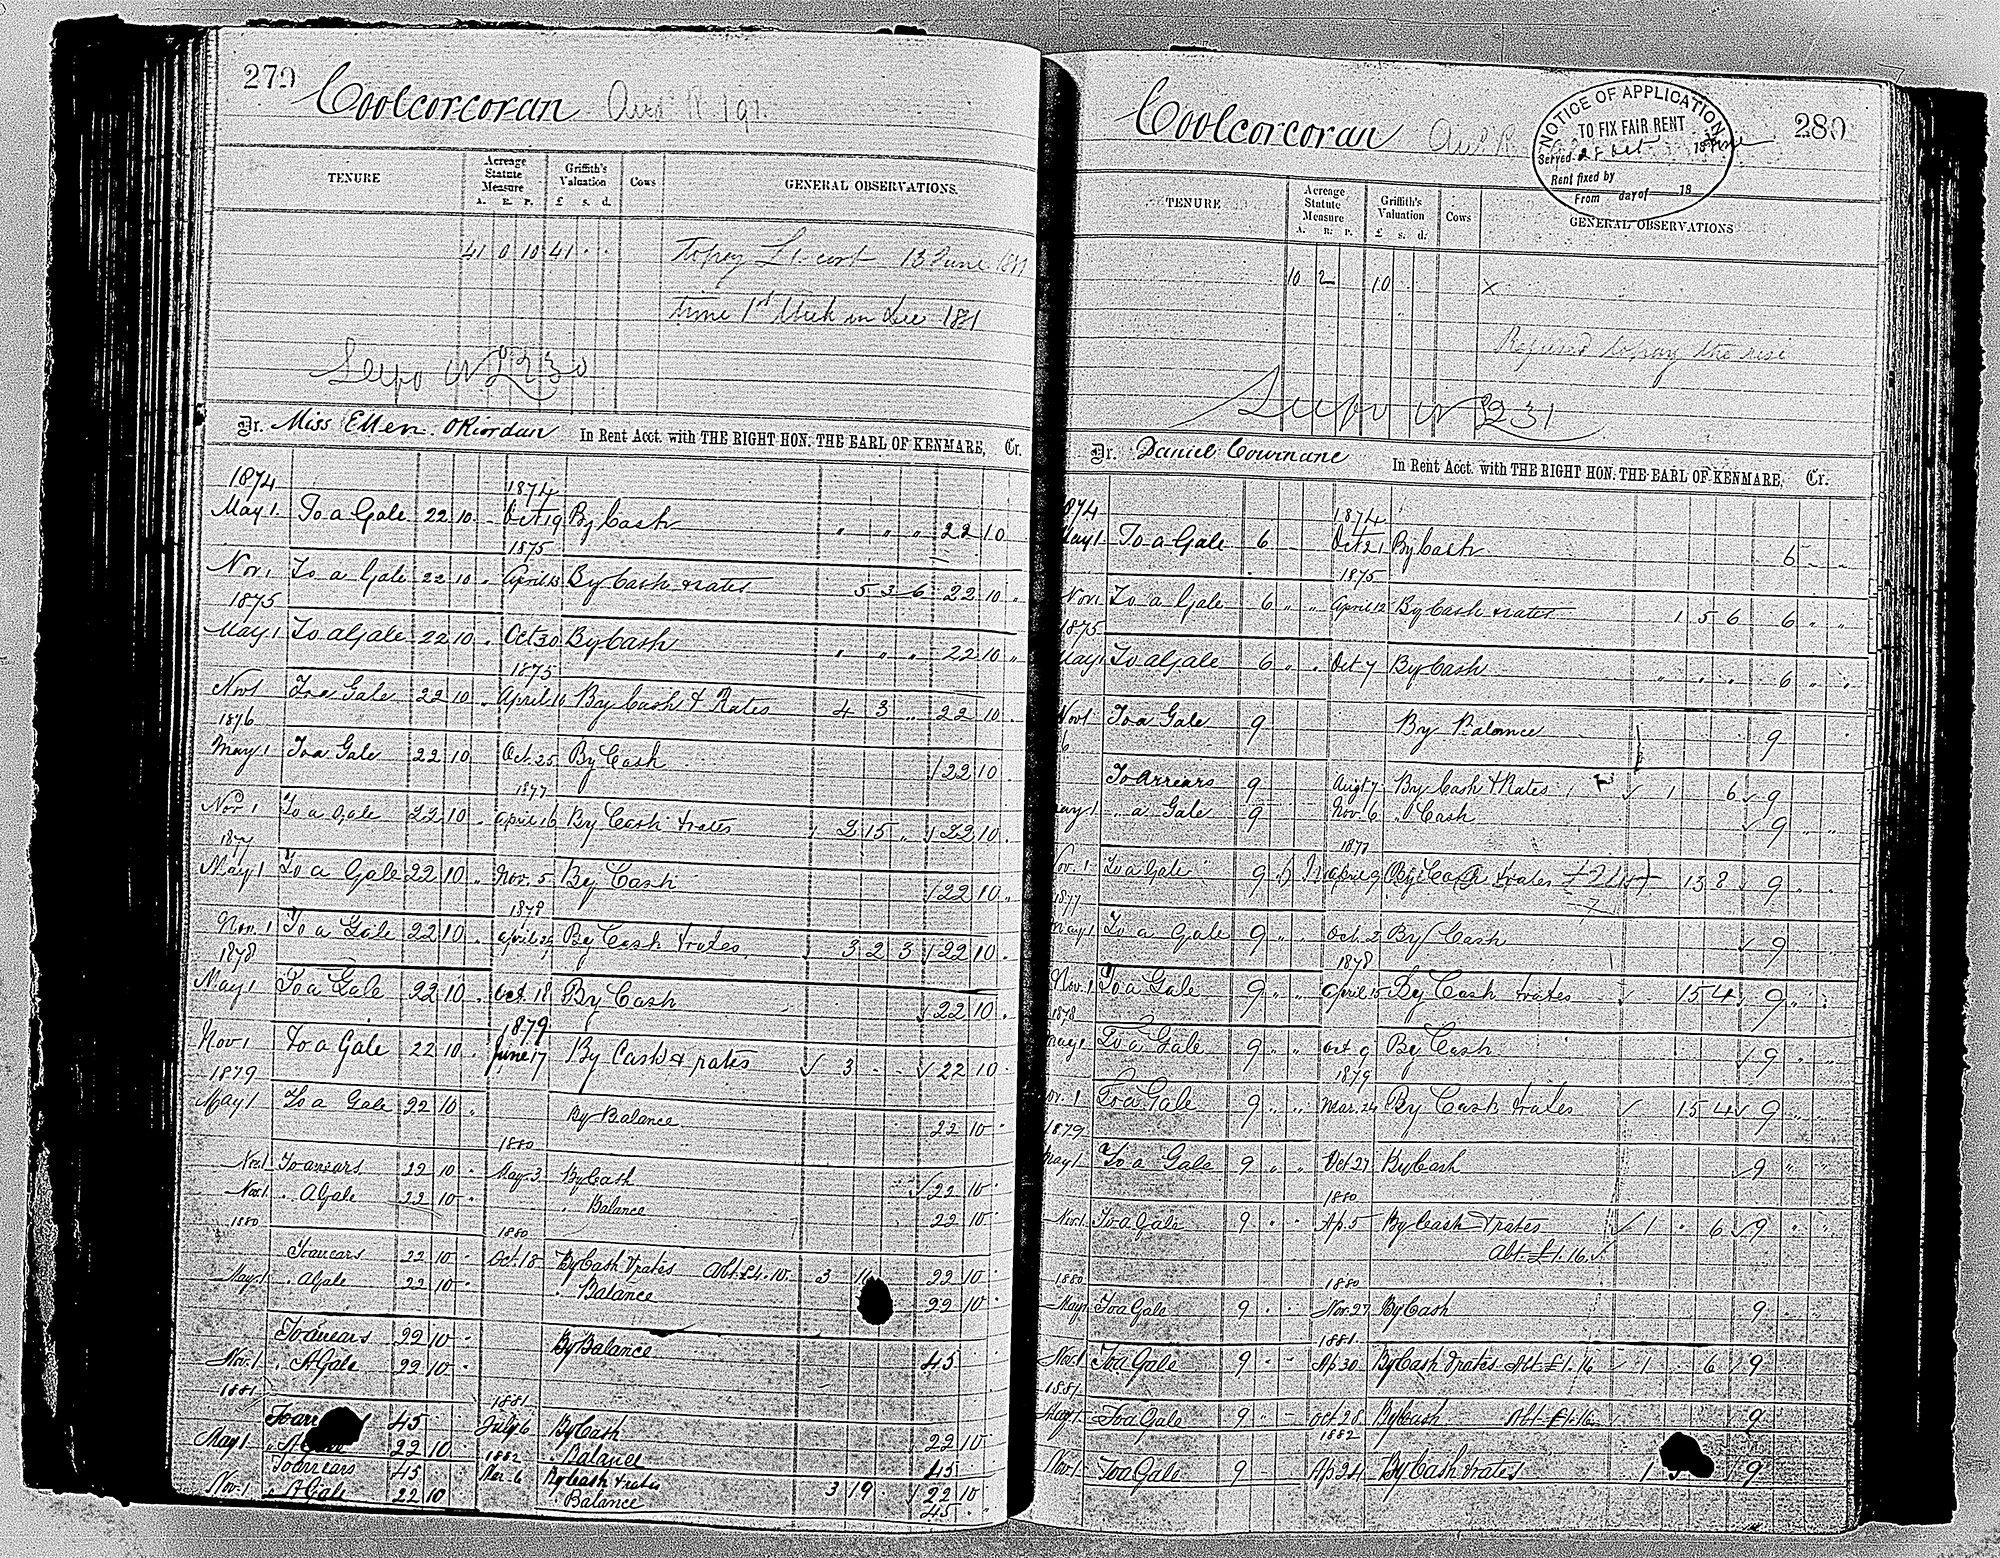 279 Coolcorcoran
TENURE Acreage Statute Measure A. R. P. Griffith's Valuation £ s. d. Cows GENERAL OBSERVATIONS.
41 0 10 41 . . to pay £1. cost 13 June 1881
time 1st Week in Dec 1881
230
Dr. Miss Ellen O'Riordan In Rent Acct. with THE RIGHT HON. THE EARL OF KENMARE, Cr.
1874 1874
May 1. To a Gale 22 10 - Oct 19 By Cash " " " 22 10
1875
Nov 1 To a Gale 22 10 . April 13 By Cash & rates 5 3 6 22 10 "
1875
May 1 To a Gale 22 10 . Oct 30 By Cash " " " 22 10 "
1875
Nov 1 To a Gale 22 10 . April 10 By Cash & Rates 4 3 " 22 10 .
1876
May 1 To a Gale 22 10 . Oct. 25 By Cash 22 10 .
1877
Nov 1 To a Gale 22 10 . April 16 By Cash & rates 2 15 " 22 10 .
1877
May 1 To a Gale 22 10 " Nov. 5 By Cash 22 10 "
1878
Nov. 1 To a Gale 22 10 . April 29 By Cash & rates 3 2 3 22 10 .
1878
May 1 To a Gale 22 10 . Oct. 18 By Cash 22 10 .
1879
Nov 1 To a Gale 22 10 . June 17 By Cash & rates ✓ 3 . . ✓ 22 10 .
1879
May 1 To a Gale 22 10 " By Balance 22 10 "
1880
Nov 1 To arrears 22 10 " May 3 By Cash ✓ 22 10 "
Nov 1 " A Gale 22 10 " " Balance 22 10 "
1880 1880
To arrears 22 10 " Oct. 18 By Cash & rates Abt. £4.10. 3 22 10
May 1 " A Gale 22 10 " " Balance 22 10 "
To arrears 22 10 " By Balance 45
Nov. 1 " A Gale 22 10 "
1881 1881
45 July 6 By Cash 22 10
May 1 22 10 1882 " Balance 45
To arrears 45 6 By Cash & rates 3 19 22 10
Nov 1 " A Gale 22 10 " Balance 45 "
Coolcorcoran 280
NOTICE OF APPLICATION
TO FIX FAIR RENT
Served 28 Oct 18
Rent fixed by
From day of 18
TENURE Acreage Statute Measure A. R. P. Griffith's Valuation £ s. d. Cows GENERAL OBSERVATIONS
10 2 10 x
Refused to pay the rise
231
Dr. Daniel Cournane In Rent Acct. with THE RIGHT HON. THE EARL OF KENMARE, Cr.
1874 1874
May 1 To a Gale 6 Oct 21 By Cash 6 " "
1875
Nov 1 To a Gale 6 " " April 12 By Cash & rates 1 5 6 6 " "
1875
May 1 To a Gale 6 " " Oct 7 By Cash " " " 6 " "
Nov 1 To a Gale 9 By Balance 9
6
To Arrears 9 Augt 7 By Cash & Rates ✓ 1 6 ✓ 9
May 1 " a Gale 9 Nov. 6 " Cash ✓ 9 " "
1877
Nov. 1 To a Gale 9 April 9 By Cash & rates 13 8 9 "
1877
May 1 To a Gale 9 " " Oct. 2 By Cash ✓ 9 "
1878
Nov. 1 To a Gale 9 " " April 15 By Cash & rates ✓ 15 4 ✓ 9 " "
1878
May 1 To a Gale 9 " " Oct 9 By Cash ✓ 9 " "
1879
Nov. 1 To a Gale 9 " " Mar. 24 By Cash & rates ✓ 15 4 ✓ 9 " "
1879
May 1 To a Gale 9 " " Oct 27 By Cash ✓ 9 " "
1880
Nov. 1 To a Gale 9 " " Ap 5 By Cash & rates ✓ 1 " 6 ✓ 9 " "
Abt. £1.16. ✓
1880 1880
May 1 To a Gale 9 " " Nov. 27 By Cash 9 "
1881.
Nov. 1 To a Gale 9 " " Ap 30 By Cash & rates Abt £1.16 1 . 6 9
1881
May 1 To a Gale 9 " Oct 28 By Cash Abt £1.16 9
1882
Nov. 1 To a Gale 9 - Ap 24 By Cash & rates 1 9